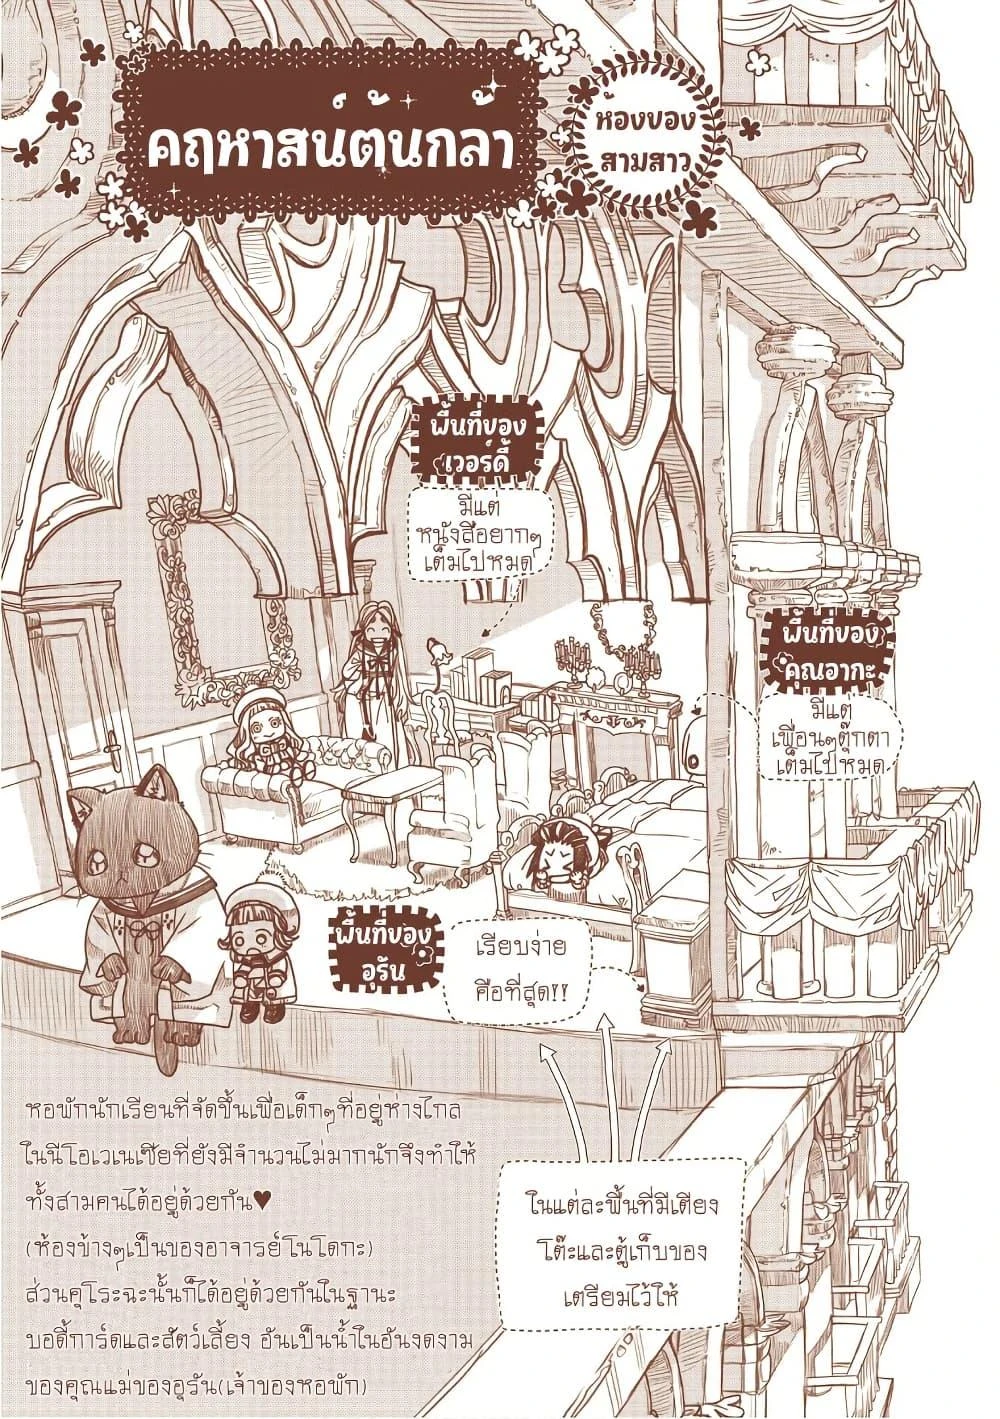 คฤหาสน์ต้นกล้า
ห้องของ
สามสาว
พื้นที่ของ
เวอร์ดี้
มีแต่
หนังสือยากๆ
เต็มไปหมด
พื้นที่ของ
คุณอากะ
มีแต่
เพื่อนๆตุ๊กตา
เต็มไปหมด
พื้นที่ของ
อุรัน
เรียบง่าย
คือที่สุด!!
หอพักนักเรียนที่จัดขึ้นเพื่อเด็กๆที่อยู่ห่างไกล
ในนีโอเวเนเซียที่ยังมีจำนวนไม่มากนักจึงทำให้
ทั้งสามคนได้อยู่ด้วยกัน♥
(ห้องข้างๆเป็นของอาจารย์โนโดกะ)
ส่วนคุโระฉะนั้นก็ได้อยู่ด้วยกันในฐานะ
บอดี้การ์ดและสัตว์เลี้ยง อันเป็นน้ำใจอันงดงาม
ของคุณแม่ของอุรัน(เจ้าของหอพัก)
ในแต่ละพื้นที่มีเตียง
โต๊ะและตู้เก็บของ
เตรียมไว้ให้